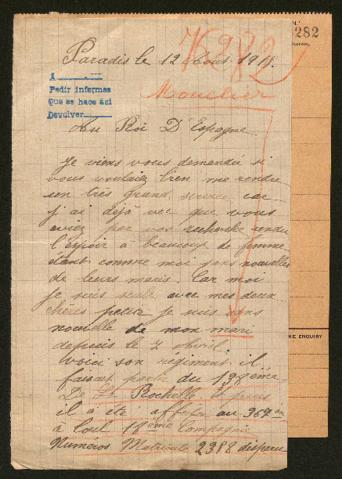 7282
282
Paradis le 12 Aout 191
Mouclier
A
Pedir informes
Que se hace así
Devolver
Au Roi D'Espagne
Je viens vous demandée si
vous vouliez bien me rendre
un très grand service car
j'ai déjà vue que vous
aviez par vos recherche rendu
l'espoir à beaucoup de femme
étant comme moi sans nouvelles
de leurs maris. Car moi
je suis seule avec mes deux
chères petite je suis sans
nouvelle de mon mari
depuis le 7 avril.
Voici son régiment il
faisait partie du 138ème
De la Rochelle et puis
il a été affecter au 367
à Toul 18ème Compagnie
Numéros Matricule 2388 disparu
ENQUIRY